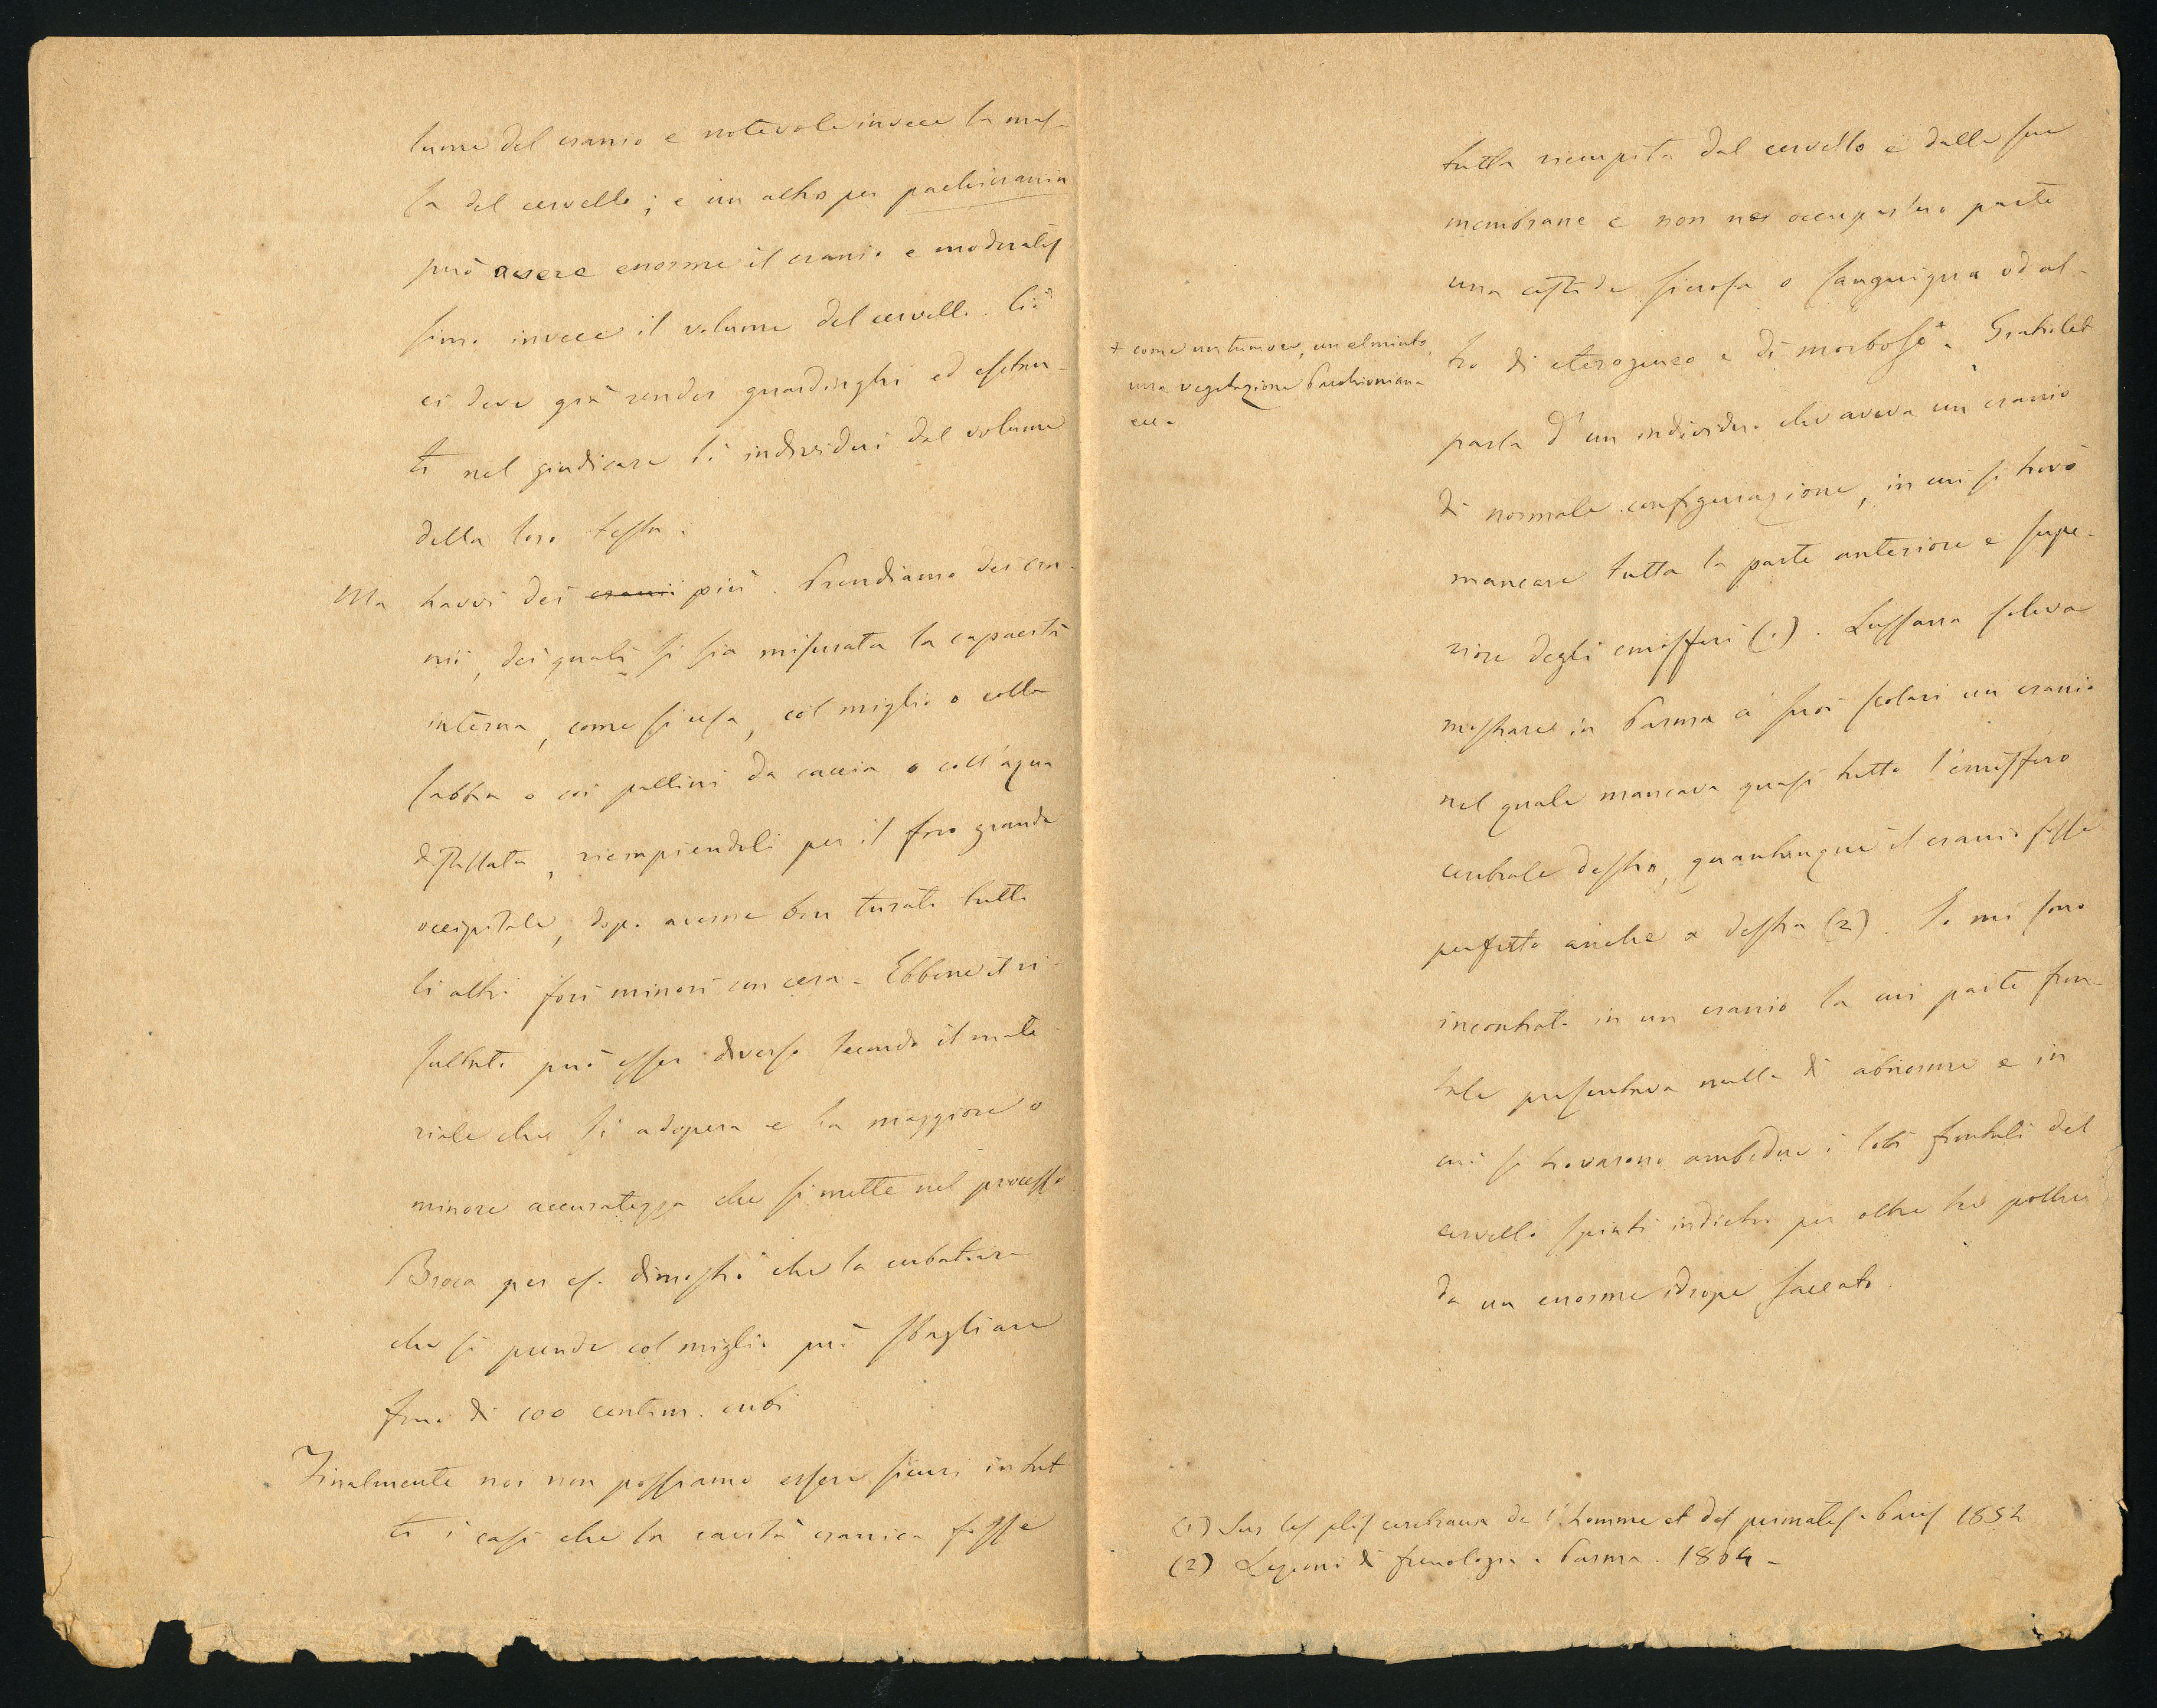 lume del cranio e notevole invece la mas-
sa del cervello; e un altro per pachicrania
può avere enorme il cranio e moderatis
simo invece il volume del cervello. Ciò
ci deve già render guardinghi ed esitan-
ti nel giudicare li individui dal volume
della loro testa.
Ma havvi dei cranii più. Prendiamo dei cra-
nii, dei quali si sia misurata la capacità
interna, come si usa, col miglio o colla
sabbia o coi pallini da caccia o coll'aqua
distillata, riempiendoli per il foro grande
occipitale, dopo averne ben turati tutti
li altri fori minori con cera. Ebbene il ri-
sultato può esser diverso secondo il mate-
riale che si adopera e la maggiore o
minore accuratezza che si mette nel processo
Broca per es. dimostrò che la cubatura
che si prende col miglio può sbagliare
fino di 100 centim. cubi
Finalmente noi non possiamo essere sicuri in tut
ti i casi che la cavità cranica fosse
tutta riempita dal cervello e dalle sue
membrane e non ne occupassero parte
una sierosa o sanguigna od al-
tro di eterogeneo e di morboso*. Gratiolet
* come un tumore, un elminto,
una vegetazione Pacchioniana
ecc.
parla d'un individuo che aveva un cranio
di normale configurazione, in cui si trovò
mancare tutta la parte anteriore e supe-
riore degli emisferi (1). Lussana soleva
mostrare in Parma a' suoi scolari un cranio
nel quale mancava quasi tutto l'emisfero
cerebrale destro, quantunque il cranio fosse
perfetto anche a destra (2). Io mi sono
incontrato in un cranio la cui parte fron-
tale presentava nulla di abnorme e in
cui si trovarono ambedue i lobi frontali del
cervello spinti indietro per oltre tre pollici
da un enorme idrope saccato.
(1) Sur les plis cerebraux de l'homme et des primates. Paris 1854
(2) Lezioni di frenologia. Parma. 1864-